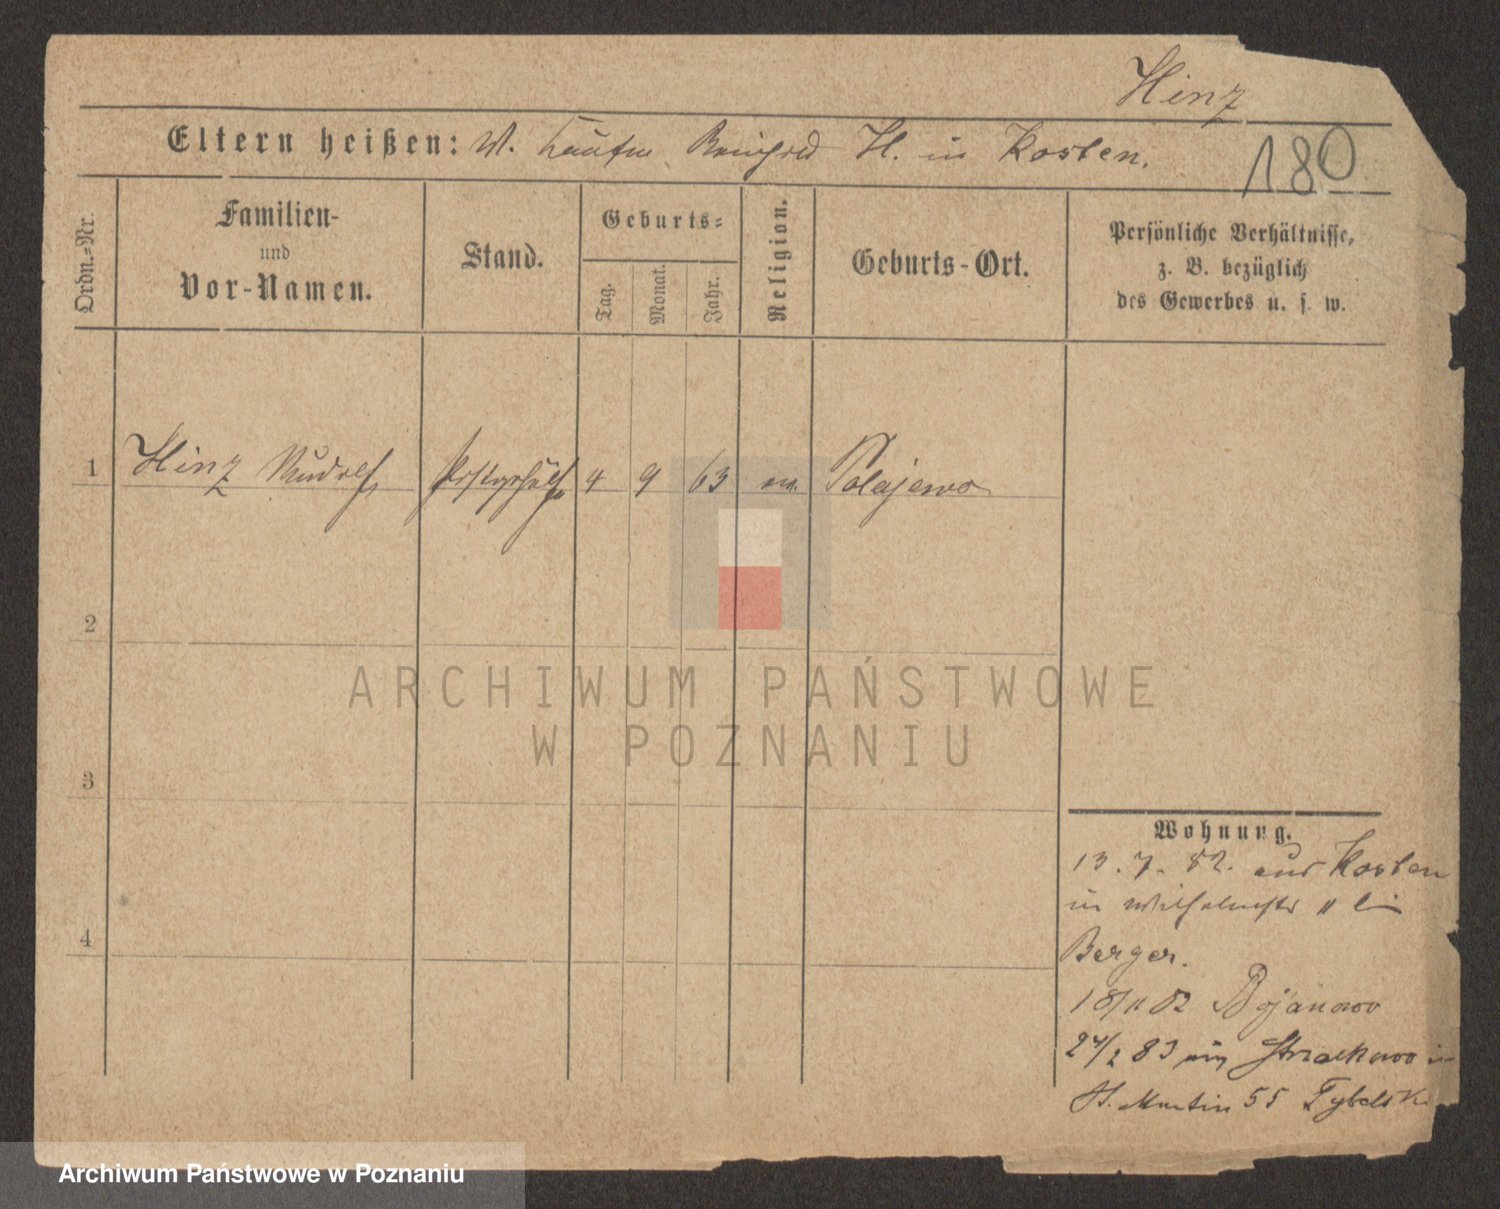 Hinz
180
Eltern heißen: V. Kaufm Reinhold H. in Kosten.
Ordn.-Nr.
Familien-
und
Vor-Namen.
Stand.
Geburts-
Tag.
Monat.
Jahr.
Religion.
Geburts-Ort.
Persönliche Verhältnisse,
z. B. bezüglich
des Gewerbes u. s. w.
1 Hinz Rudolf Postgehülfe 4 9 63 ev. Polajewo
2
3
4
Wohnung.
13. 7. 82. aus Kosten
in Wilhelmstr 11 bei
Berger.
18/11 82 Bojanowo
24/2 83 Strzalkowo in
St. Martin 55 Tybelski
ARCHIWUM PAŃSTWOWE
W POZNANIU
Archiwum Państwowe w Poznaniu